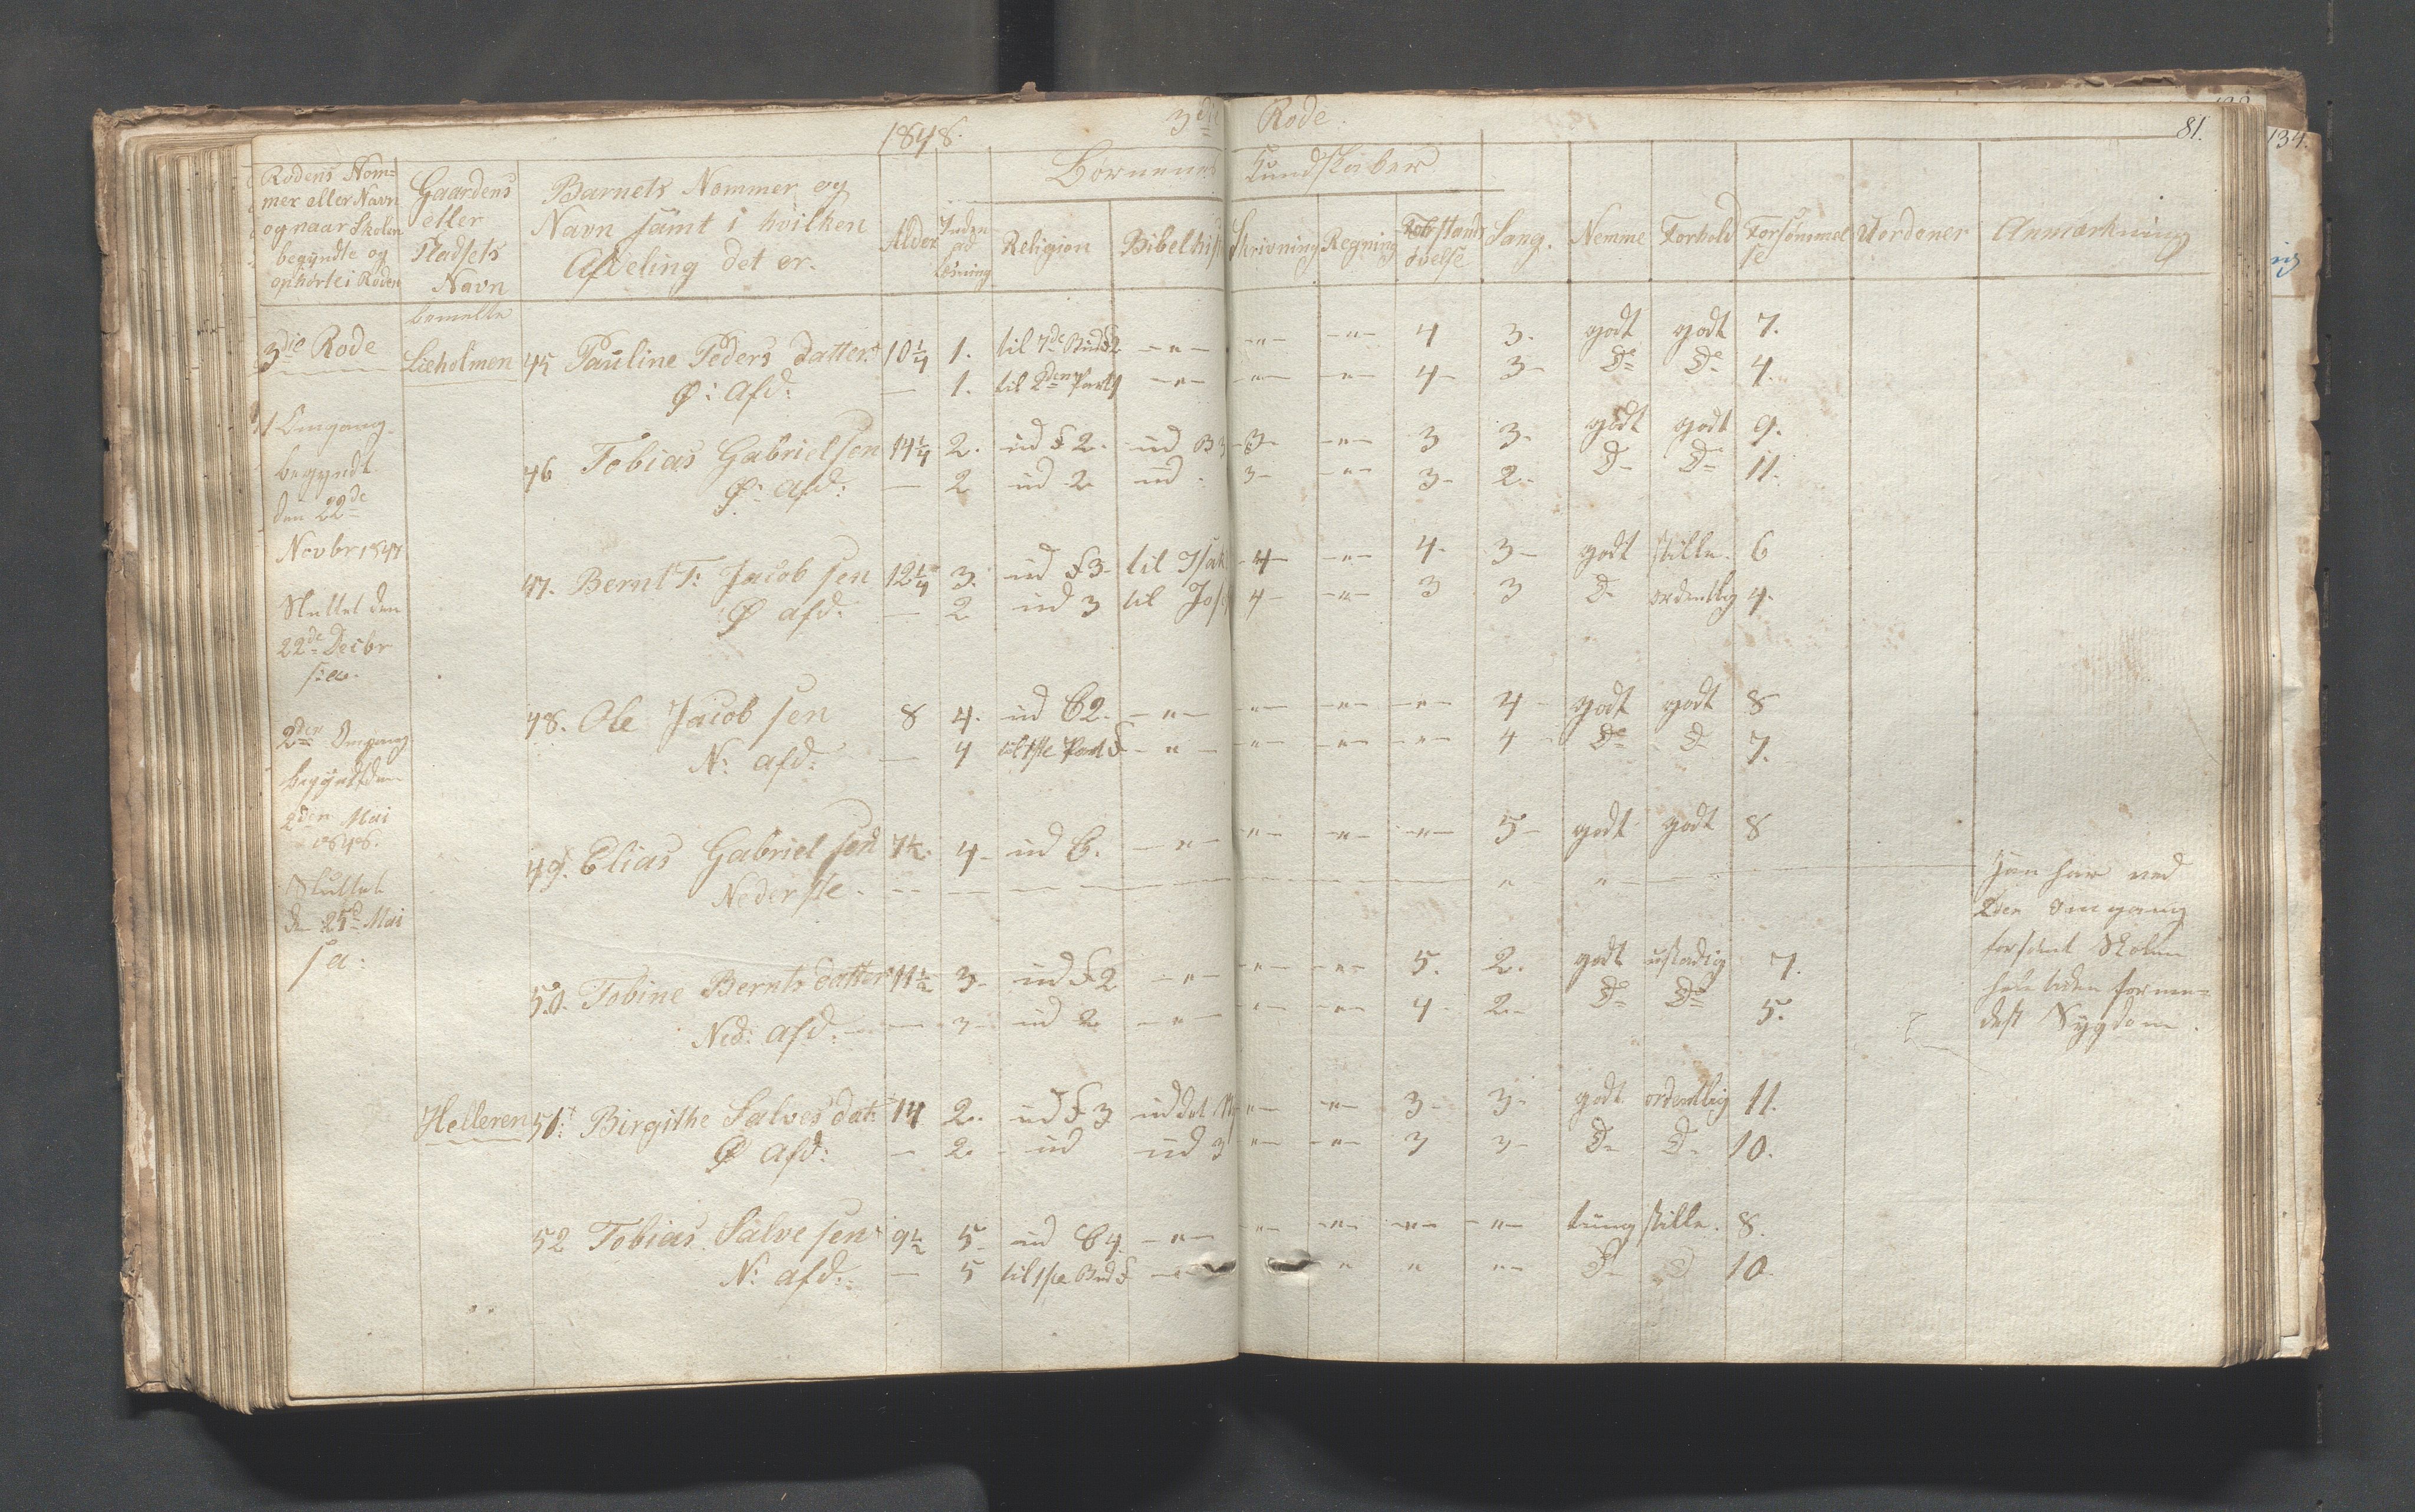 1848. 3die Rode. 81.
134.
Rodens Nom=
mer eller Navn
og naar Skolen
begyndte og
ophørte i Roden
Gaardens
eller
Pladsets
Navn
Barnets Nommer og
Navn samt i hvilken
Afdeling det er.
Alder
Børnenes Kundskaber
Religion Bibelhist Skrivning Regning
Forstands
øvelse
Sang. Nemme Forhold
Forsømmel
se
Uordener Anmærkning
3die Rode
bemelte
45 Pauline Peders datter 10 1/4 1. til 7de Bud F2 -"- -"- -"- 4 3. godt godt 7.
Ø: Afd: — 1. til 2den Part -"- -"- -"- 4- 3- Do Do 4.
1 Omgang.
begyndt
den 22de
Novbr 1847
Sluttet den
22de Decbr
s:a.
46 Tobias Gabrielsen 14 1/4 2. ud F 2. ud B 3 -3- -"- 3 3. godt godt 9.
Ø: Afd: — 2 ud 2 ud 3- -"- 3- 2- D- Do 11.
47. Bernt T: Jacobsen 12 1/4 3. ud F3- til Isak -4- -"- 4- 3- godt stille. 6
Ø afd: — 2 ud 3 til Jos 4- -"- 3 3 D- ordentlig 4.
2den Omgang
begyndt den
2den Mai
1848.
Sluttet
d 25d Mai
s a:
48. Ole Jacobsen 8 4. ud C2. -"- -"- -"- -"- 4- godt godt 8
N: afd: — 4 til 1ste Part F -"- -"- -"- -"- 4- Do D 7.
49. Elias Gabrielsen 7 1/2. 4- ud C. -"- -"- -"- -"- 5- godt godt 8
Nederste.
Han har ved
2den Omgang
forsømt Skolen
hele tiden forme=
delst Sygdom.
50. Tobine Berntsdatter 11 1/2 3- ud F2 -"- -"- -"- 5. 2. godt ustadig 7.
Ned: Afd: — 3- ud 2 -"- -"- -"- 4- 2- Do Do 5.
Helleren 51: Birgithe Salves dat: 14 2. ud F 3 -"- -"- 3- 3- godt ordentlig 11.
Ø Afd: — 2 - ud ud 3 -"- -"- 3 3- D- D- 10.
52 Tobias Salvesen 9 1/2 5- ud C4. -"- -"- -"- -"- -"- tung stille. 8.
N: afd: — 5 til 1ste Bud F -"- " " "- D- D 10.